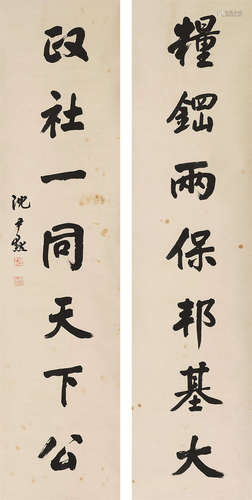 糧鋼兩保邦基大
政社一同天下公
沈尹默